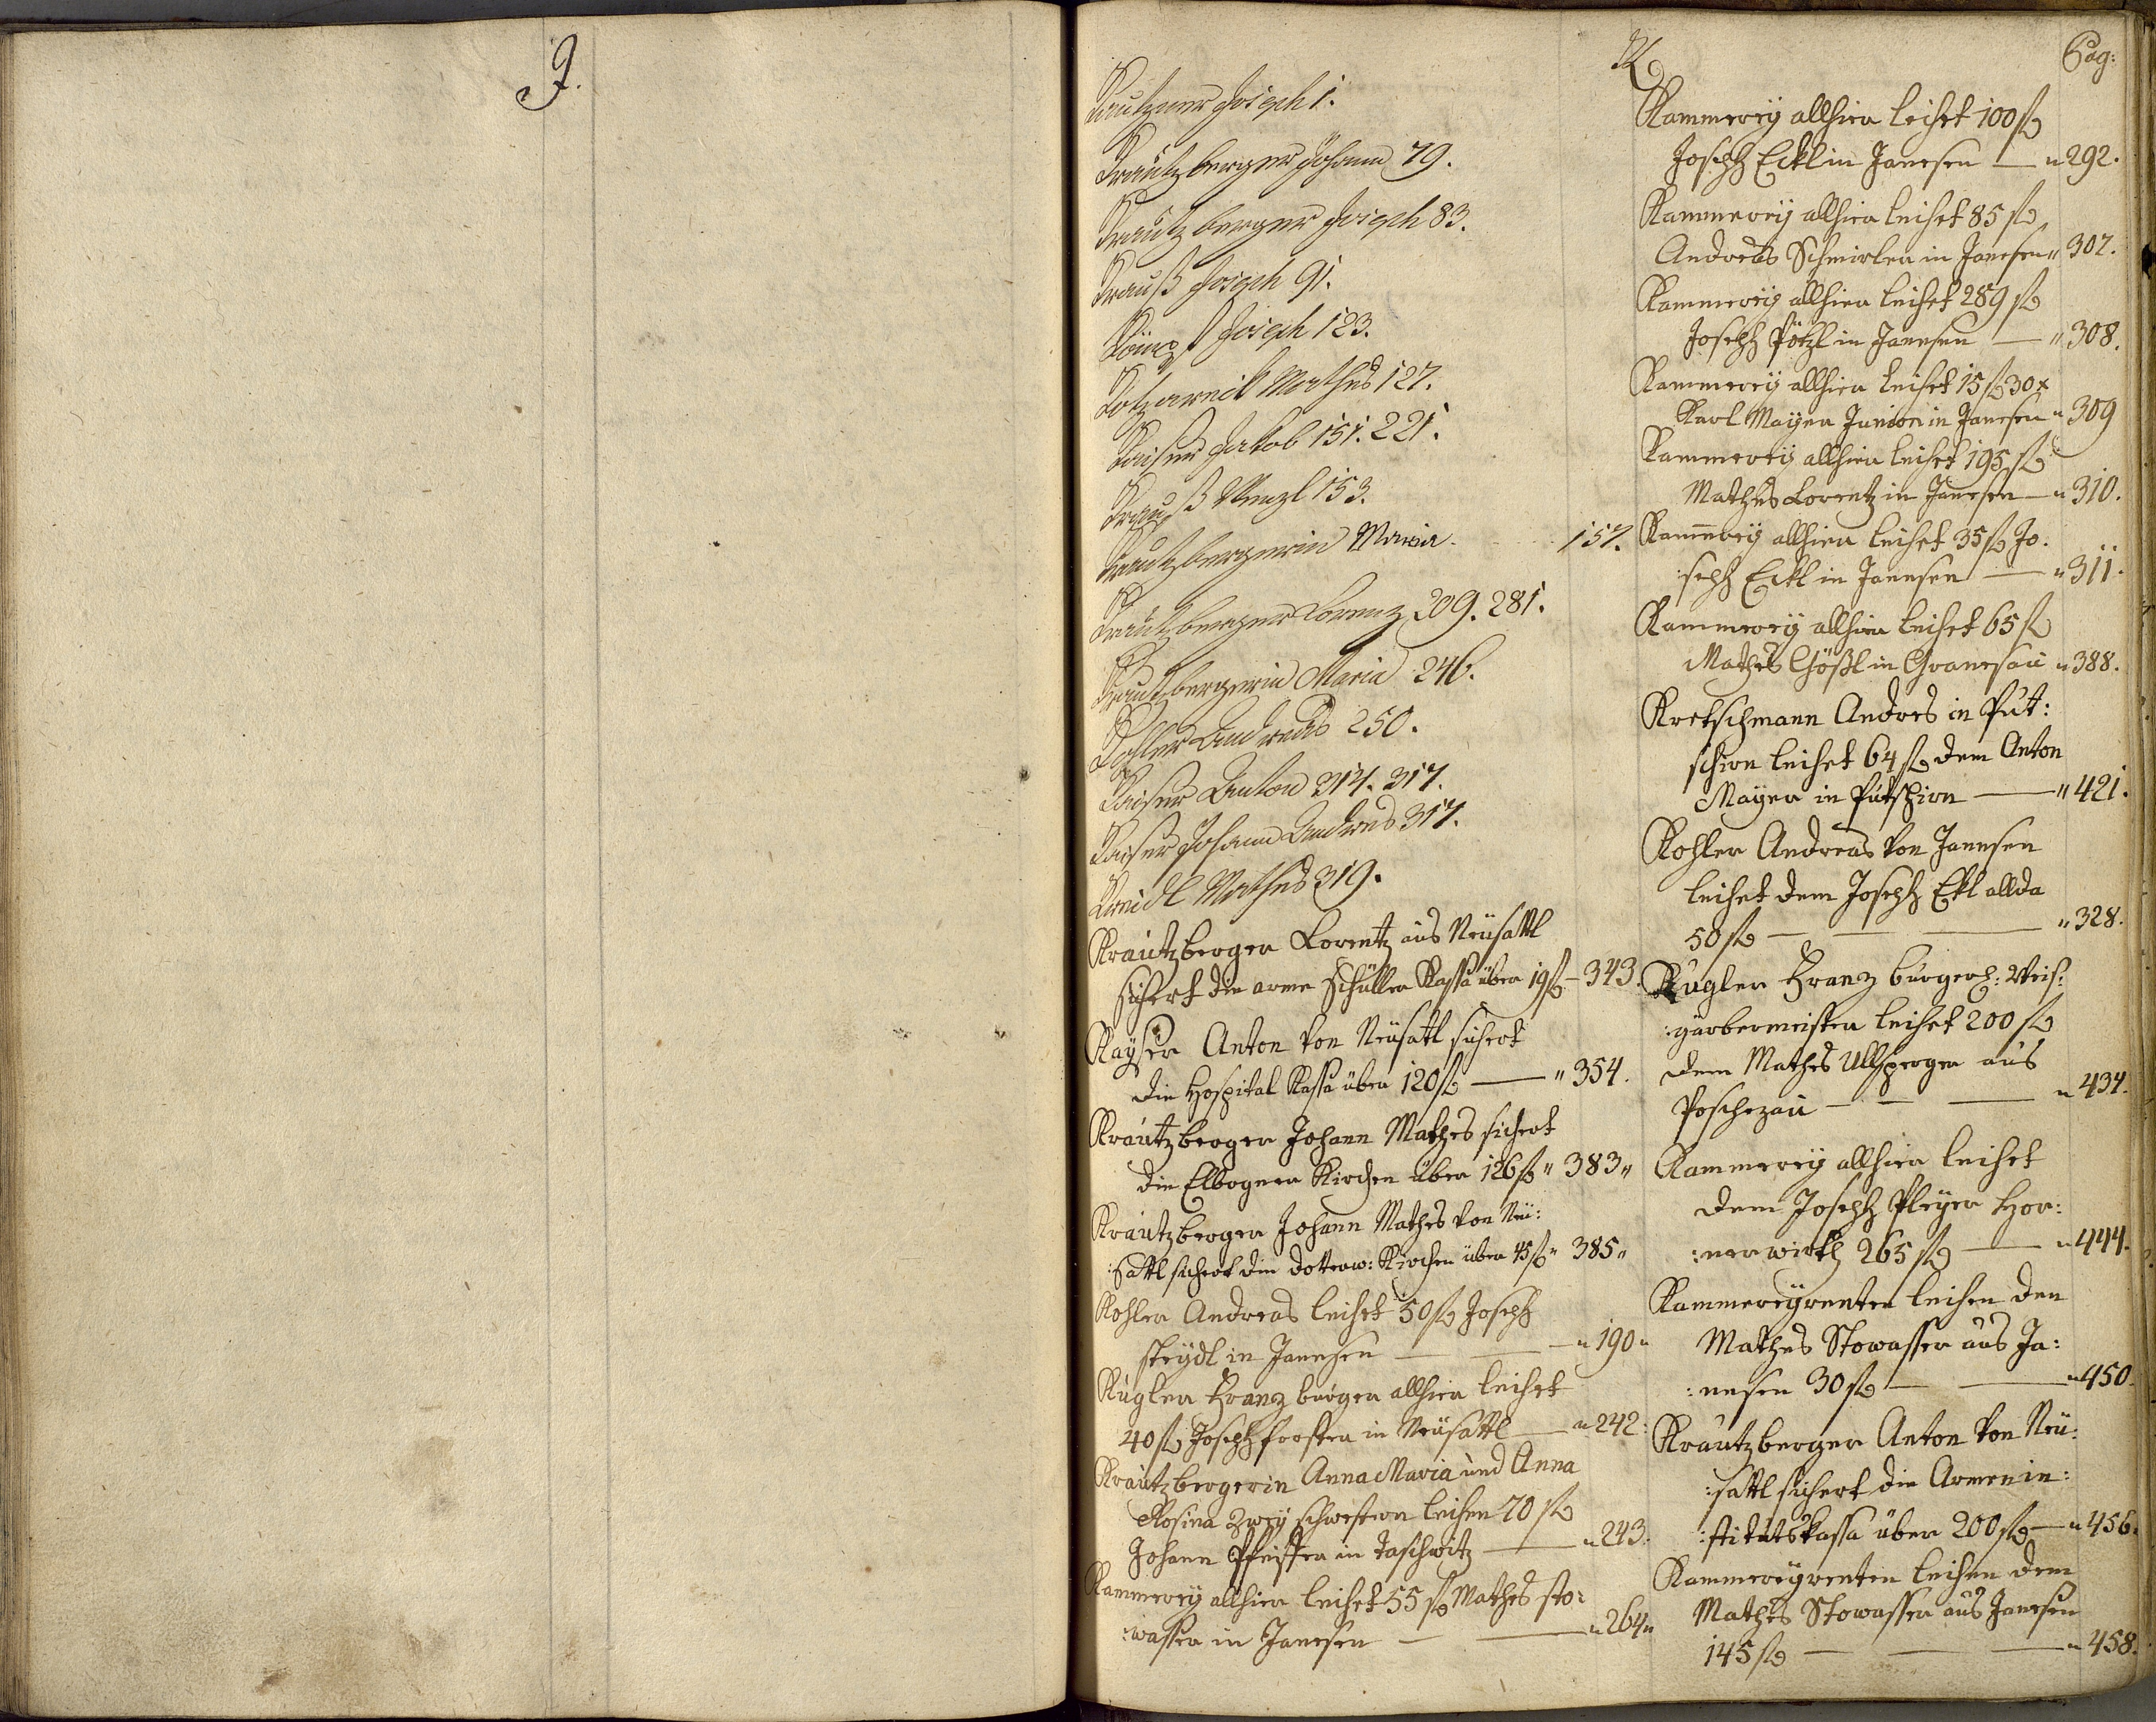 J.
K
Pag:
Kautzner Joseph 1.
Krautzberger Johann 79.
Krautzberger Joseph 83.
Krauß Joseph 91.
Joseph 123.
Mathes 127.
Kaiser Jakob 151. 221.
Krauß Wenzl 153.
Krautzbergerin Maria. 157.
Krautzberger Lorenz 209. 281.
Krautzbergerin Maria 246.
Kohler Andreas 250.
Kaiser Anton 314. 317.
Kaiser Johann Andreas 317.
Kreidl Mathes 319.
Krautzberger Lorentz aus Neüsattl
sichert die arme Schüller Kassa über 19 f – 343.
Kaÿser Anton von Neüsattl sichert
die Hospital Kassa über 120 f — " 354.
Krautzberger Johann Mathes sichert
die Elbogner Kirchen über 126 f " 383 "
Krautzberger Johann Mathes von Neü:
:sattl sichert die dotterw: Kirchen über 45 f " 385 "
Kohler Andreas leihet 50 f Joseph
steÿdl in Janesen — — " 190 "
Kugler Franz burger allhier leihet
40 f Joseph forster in Neüsattl — " 242:
Krautzbergerin Anna Maria und Anna
Rosina zweÿ schwestern leihen 70 f
Johann Pfeiffer in taschwitz — " 243.
Kammereÿ allhier leihet 55 f Mathes sto:
:wasser in Janesen — — " 264 "
Kammereÿ allhier leihet 100 f
Joseph Eckl in Janesen — " 292.
Kammereÿ allhier leihet 85 f
Andreas Schmirler in Janesen " 307.
Kammereÿ allhier leihet 289 f
Joseph Pötzl in Janesen — " 308.
Kammereÿ allhier leihet 15 f 30 x
Karl Maÿer Junior in Janesen " 309
Kammereÿ allhier leihet 195 f
Mathes Lorentz in Janesen — " 310.
Kam̄ereÿ allhier leihet 35 f Jo:
:seph Eckl in Janesen — " 311.
Kammereÿ allhier leihet 65 f
Mathes Gößl in Granesau " 388.
Kretschmann Andres in Püt:
schirn leihet 64 f dem Anton
Maÿer in Pütschirn — " 421.
Kohler Andreas von Janesen
leihet dem Joseph Ekl allda
50 f — — — " 328.
Kugler Franz burgerl: Weis:
:gärbermeister leihet 200 f
dem Mathes Ullsperger aus
Poschezau — — — " 434.
Kammereÿ allhier leihet
dem Joseph Pleÿer Hor:
:nerwirth 265 f — " 444.
Kammereÿrenten leihen den
Mathes Stowasser aus Ja:
:nesen 30 f — — " 450.
Krautzberger Anton von Neü:
:sattl sichert die Armenin:
:stitutskassa über 200 f — " 456.
Kammereÿrenten leihen dem
Mathes Stowasser aus Janesen
145 f — — — " 458.